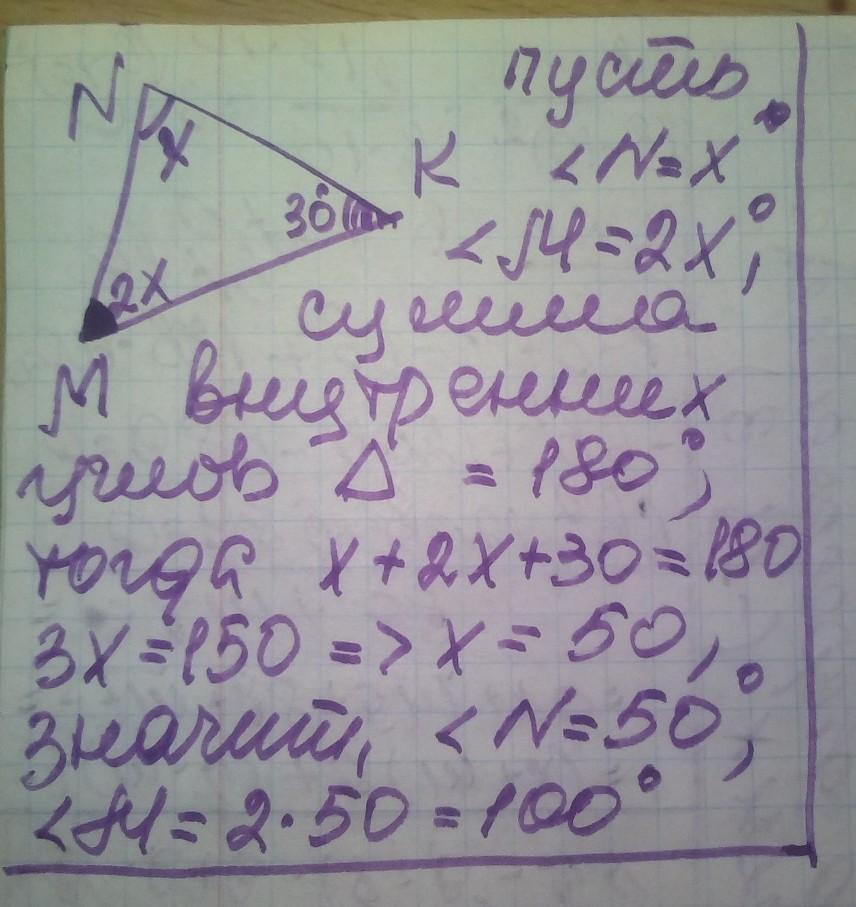 N пусть
x K <N=x°
30° <M=2x°,
2x сумма
M внутренних
углов Δ = 180°,
тогда x+2x+30=180
3x=150 => x = 50,
значит, <N=50°,
<M=2·50=100°